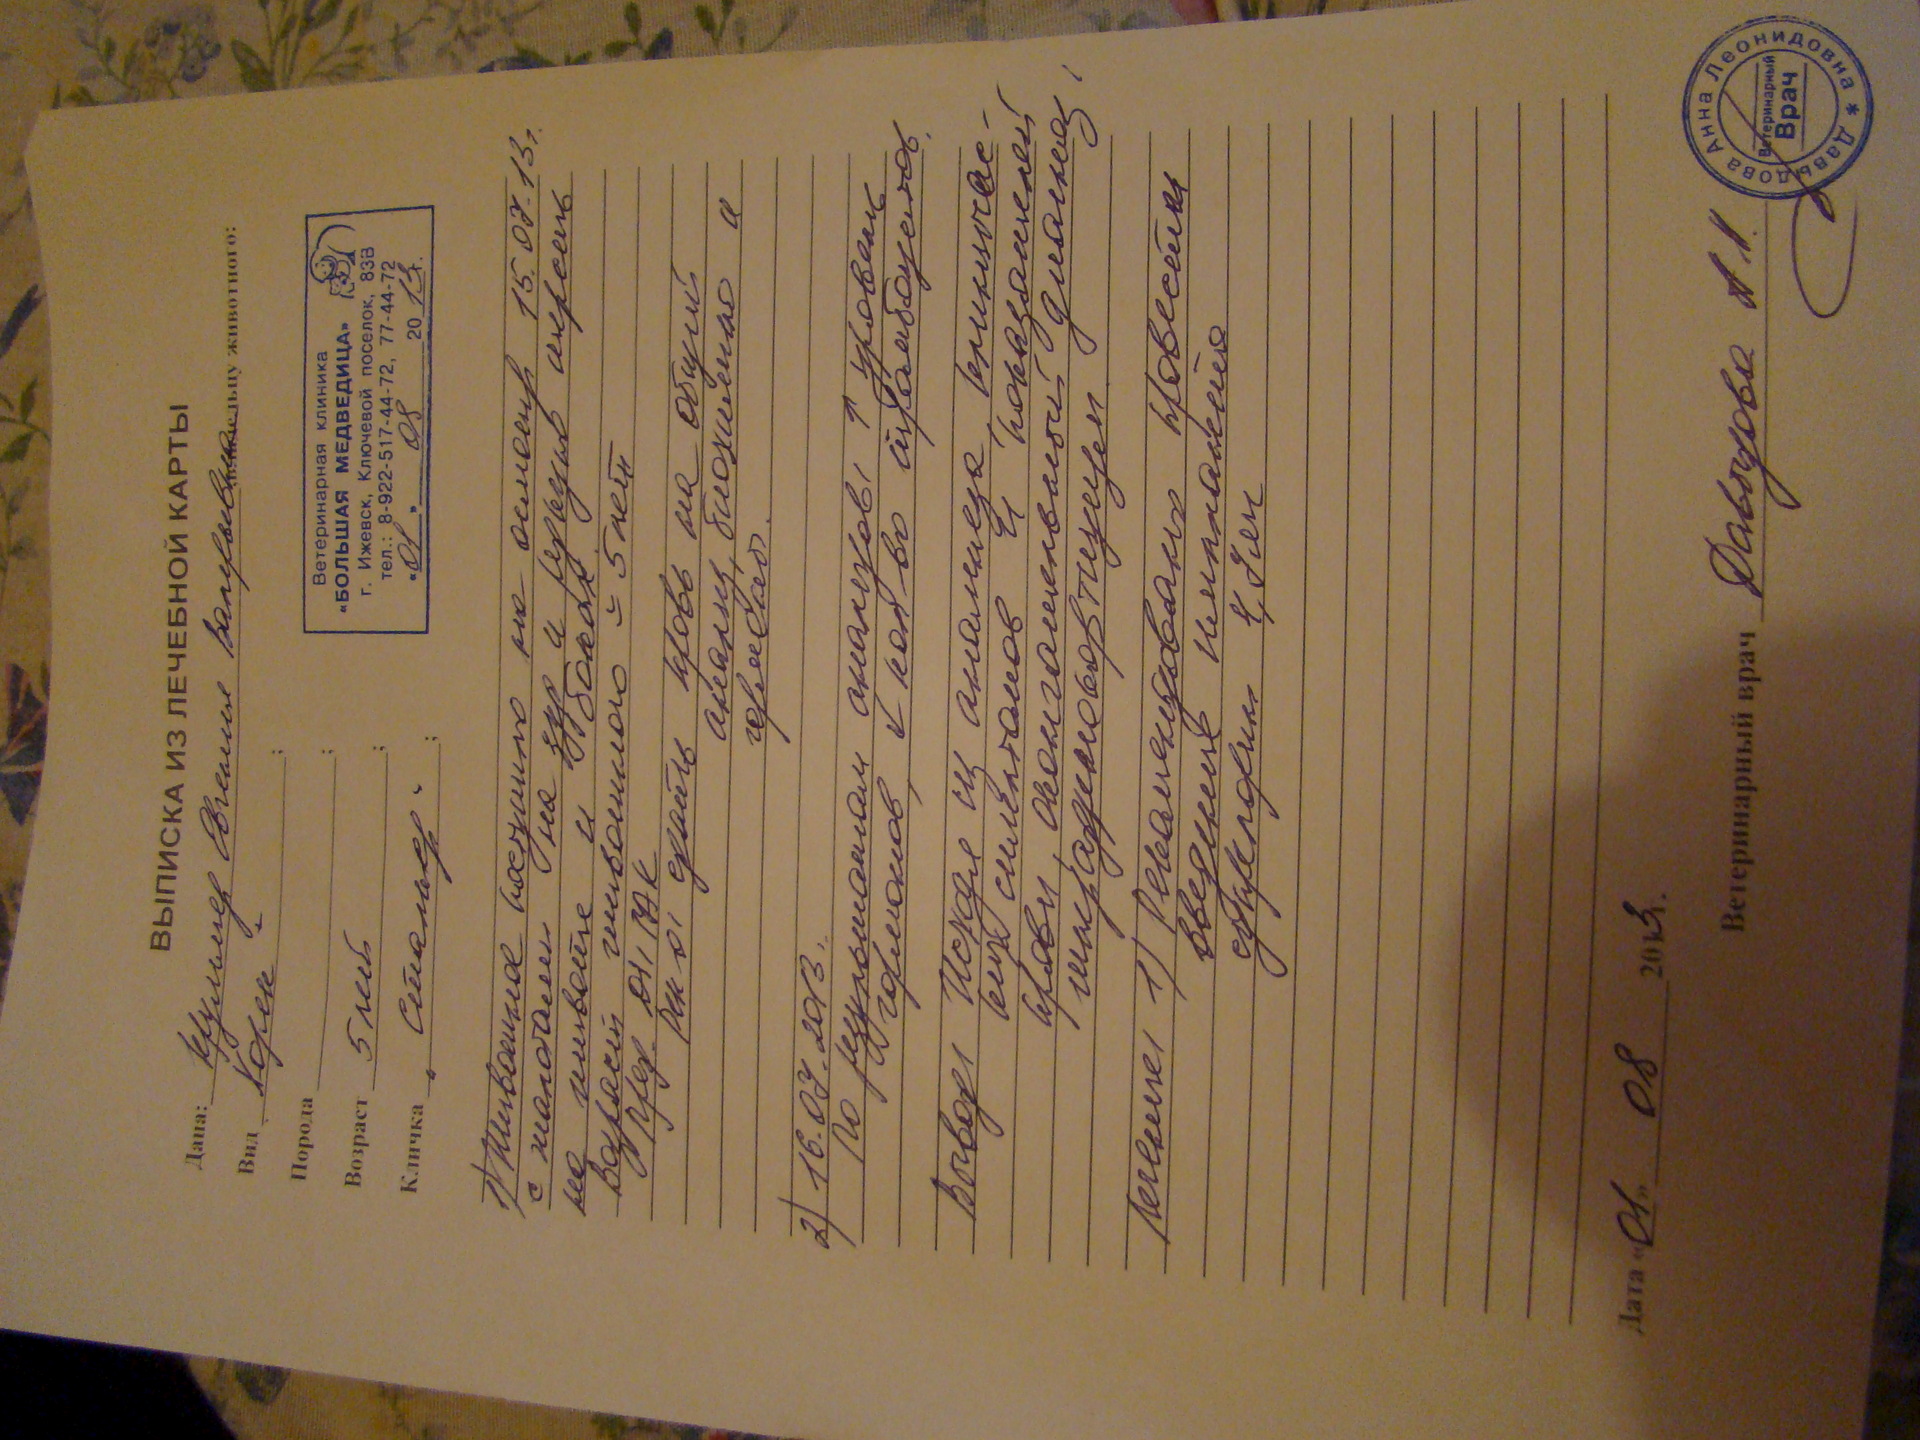 ВЫПИСКА ИЗ ЛЕЧЕБНОЙ КАРТЫ
Дана: Евгении владельцу животного:
Вид Хорек ;
Порода ;
Возраст 5 лет ;
Кличка " Сталкер " ;
Ветеринарная клиника
«БОЛЬШАЯ МЕДВЕДИЦА»
г. Ижевск, Ключевой поселок, 83В
тел.: 8-922-517-44-72, 77-44-72
"01" 08 2013г.
1) Животное поступило на осмотр 15.07.13г.
с жалобами на зуд и редкую шерсть
на животе и боках.
Возраст животного ≈ 5 лет
сдать кровь на общий
анализ, биохимию и
2) 16.07.2013г.
По результатам анализов: ↑ уровень
гормонов, ↓ кол-во тромбоцитов.
Вывод: Исходя из анамнеза, клиничес-
ких симптомов и показателей
крови, окончательный диагноз:
Лечение: 1) Рекомендовано провести
введение импланта
супрелорин 4,7 мг
Дата "01" 08 2013г.
Ветеринарный врач Давыдова А.Л.
Давыдова Анна Леонидовна *
Ветеринарный
Врач